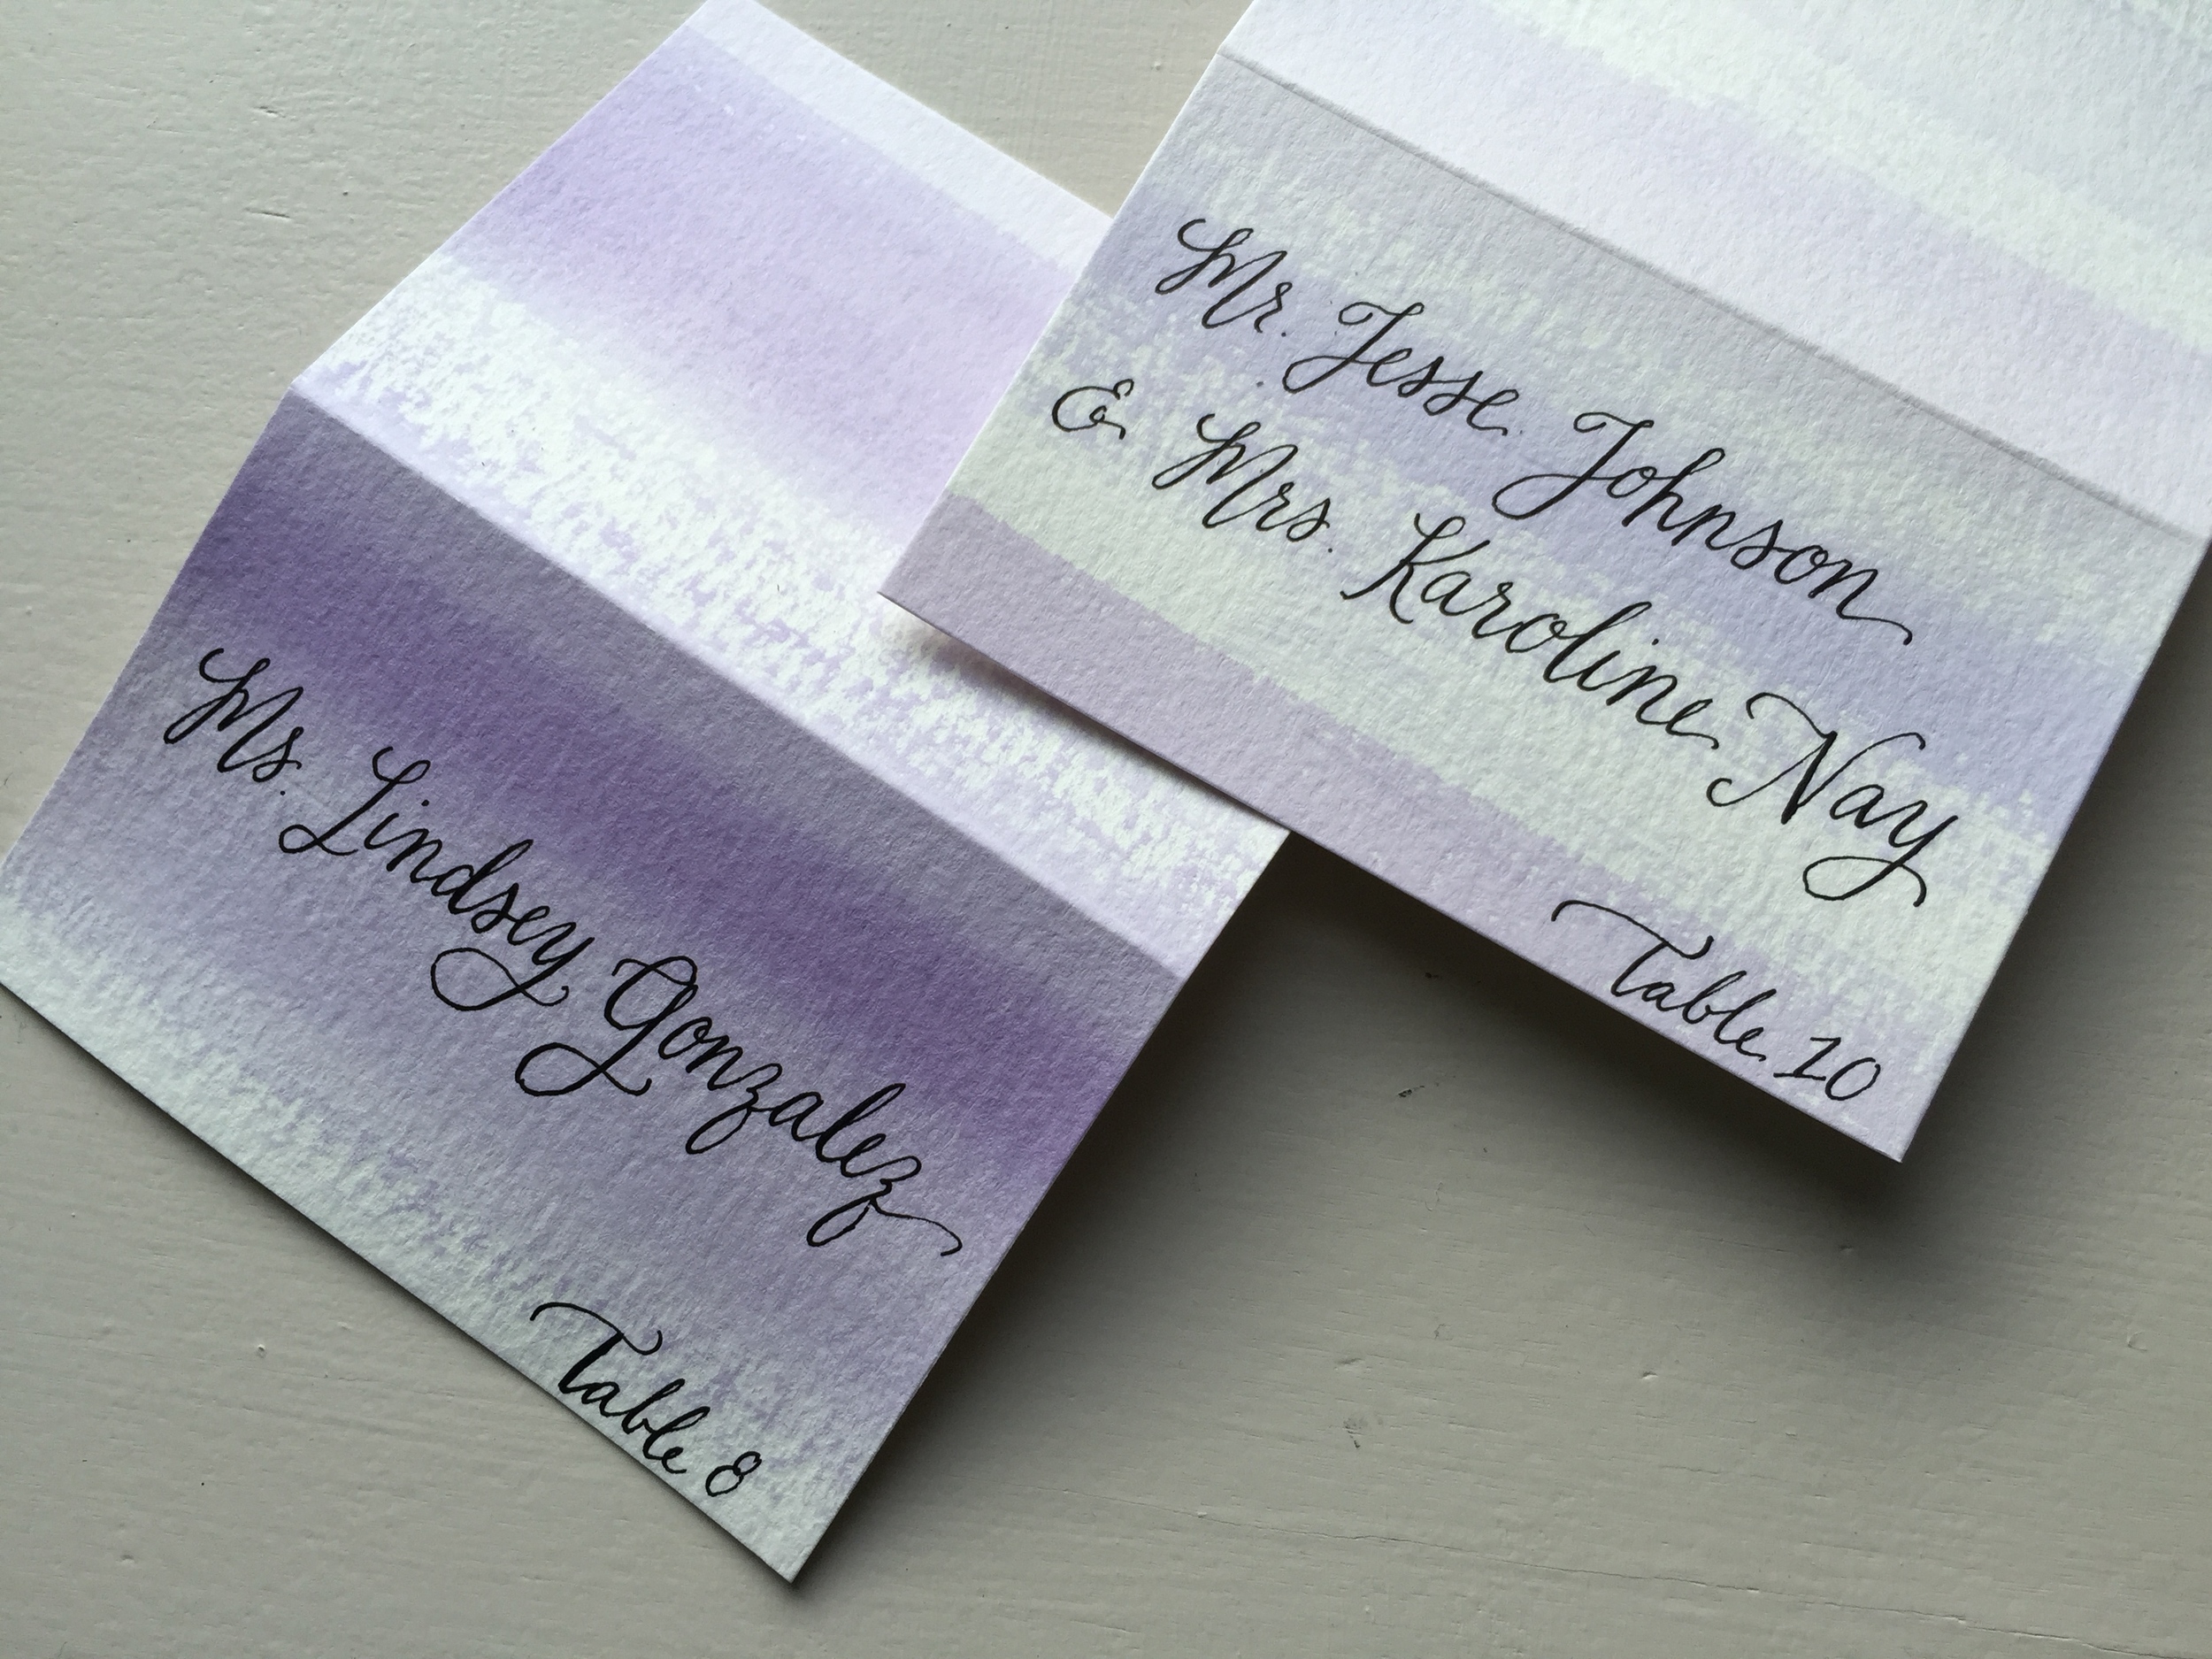 Mr. Jesse Johnson
& Mrs. Karoline Nay
Table 10
Ms. Lindsey Gonzalez
Table 8